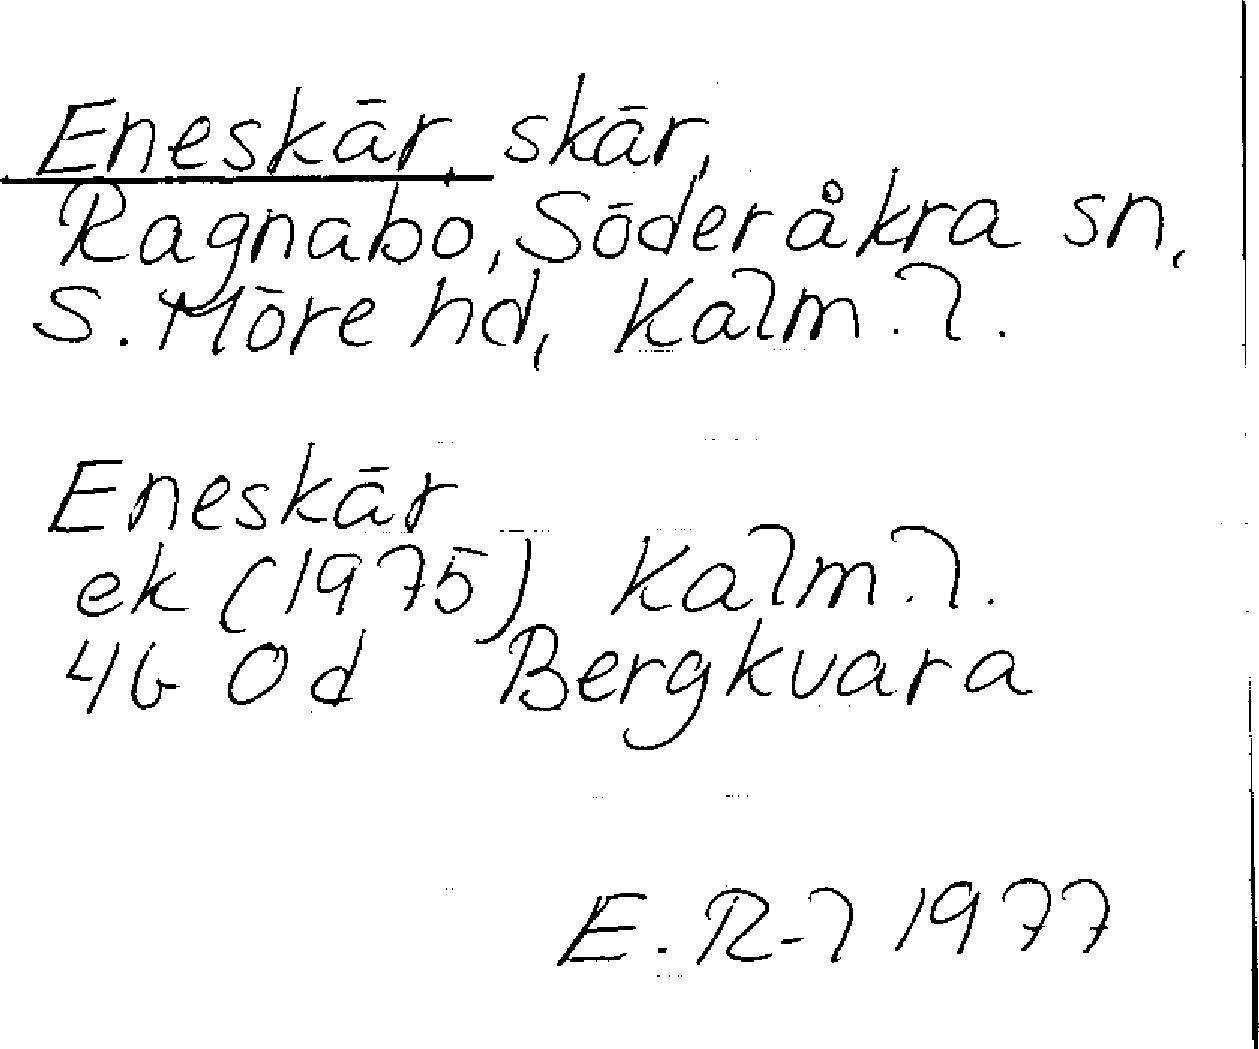 Eneskär, skär,
Ragnabo, Söderåkra sn,
S. Möre hd, Kalm. l.
Eneskär
ek (1975) Kalm. l.
4G 0d Bergkvara
E. R-l 1977